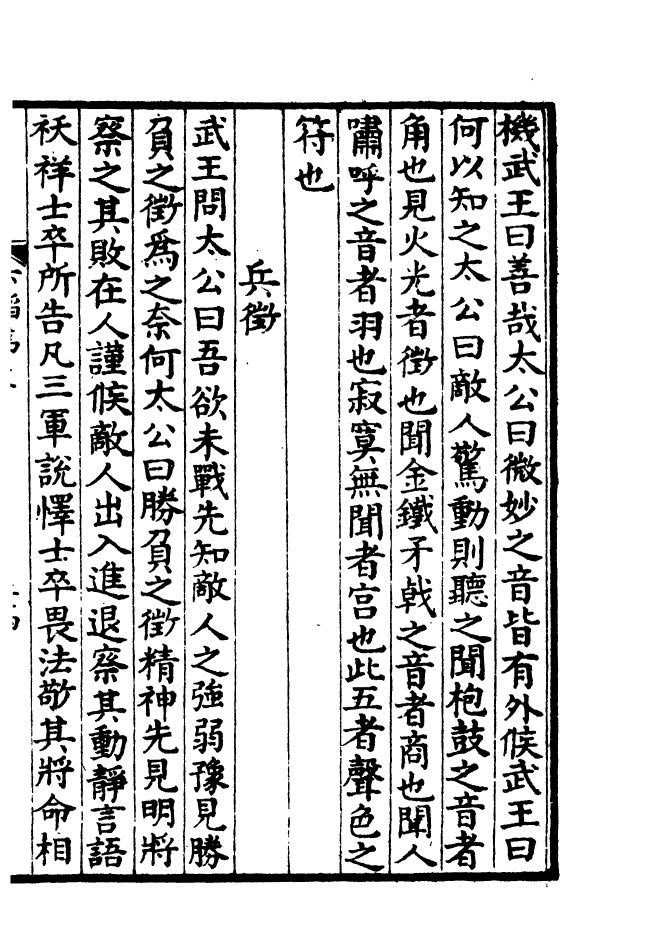 機武王曰善哉太公曰微妙之音皆有外候武王曰
何以知之太公曰敵人驚動則聽之聞枹鼓之音者
角也見火光者徵也聞金鐵矛戟之音者商也聞人
嘯呼之音者羽也寂寞無聞者宫也此五者聲色之
符也
兵徵
武王問太公曰吾欲未戰先知敵人之強弱豫見勝
負之徵爲之奈何太公曰勝負之徵精神先見明將
察之其敗在人謹候敵人出入進退察其動靜言語
祅祥士卒所告凡三軍說懌士卒畏法敬其將命相